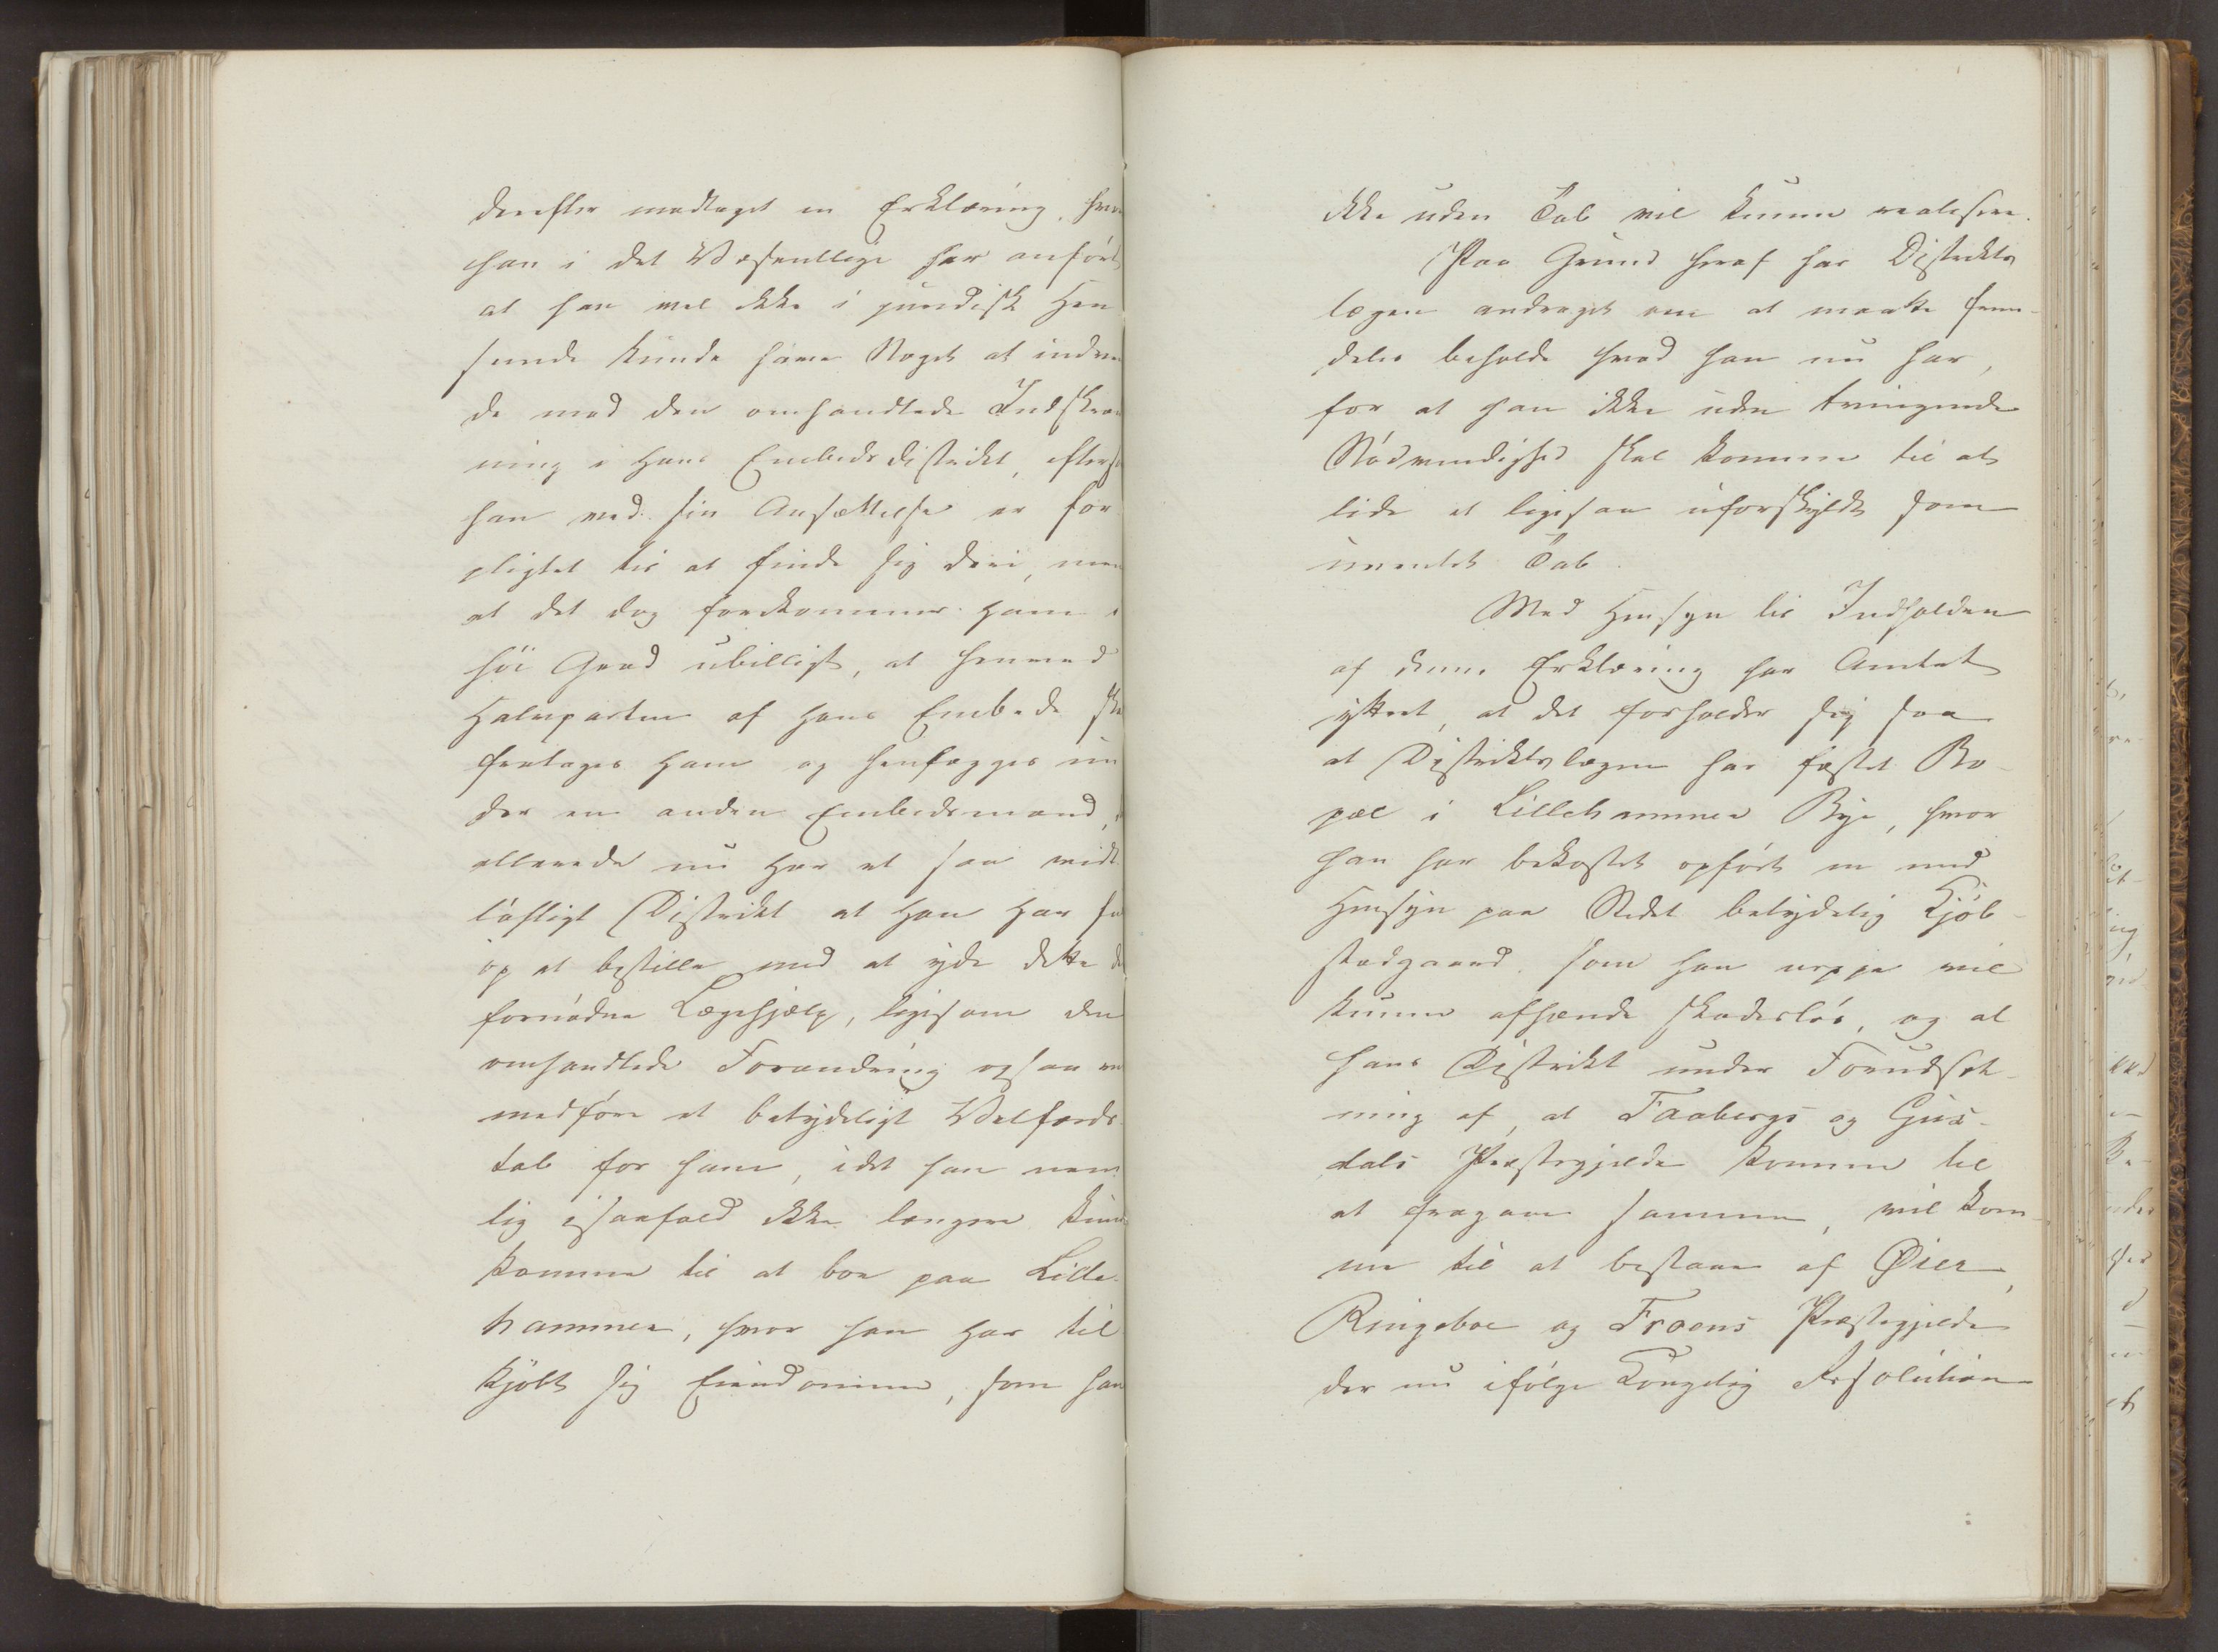 derefter modtaget en Erklæring, hvori
han i det Væsentlige har anført
at han vel ikke i juridisk Hen
seende kunde have Noget at indven
de mod den omhandlede Indskræn
ning i hans Embedsdistrikt, eftersom
han ved sin Ansættelse er for
pligtet til at finde sig deri, men
at det dog forekommer ham i
høi Grad ubilligt, at henved
Halvparten af hans Embede skal
fratages ham og henlægges un
der en anden Embedsmand,
allerede nu har et saa vidt
løftigt Distrikt at han har
op at bestille med at yde dette
fornødne Lægehjælp, ligesom den
omhandlede Forandring ogsaa
medføre et betydeligt Velfærds
tab for ham, idet han nem
lig isaafald ikke længere kunde
komme til at boe paa Lille
hammer, hvor han har til
kjøbt sig Eiendomme, som han
ikke uden Tab vil kunne realisere.
Paa Grund heraf har Distrikts
lægen andraget om at maatte frem-
deles beholde hvad han nu har,
for at han ikke uden tvingende
Nødvendighed skal komme til at
lide et ligesaa uforskyldt som
uventet Tab.
Med Hensyn til Indholden
af denne Erklæring har Amtet
yttret, at det forholder sig saa
at Distriktslægen har fæstet Bo-
pæl i Lillehammer Bye, hvor
han har bekostet opført en med
Hensyn paa Stedet betydelig Kjøb-
stadgaard, som han neppe vil
kunne afhænde skadesløs, og at
hans Distrikt under Forudsæt-
ning af, at Faabergs og Gus-
dals Præstegjelde komme til
at fragaae samme, vil kom-
me til at bestaae af Øier,
Ringeboe og Froens Præstegjelde
der nu ifølge Kongelig Resolution